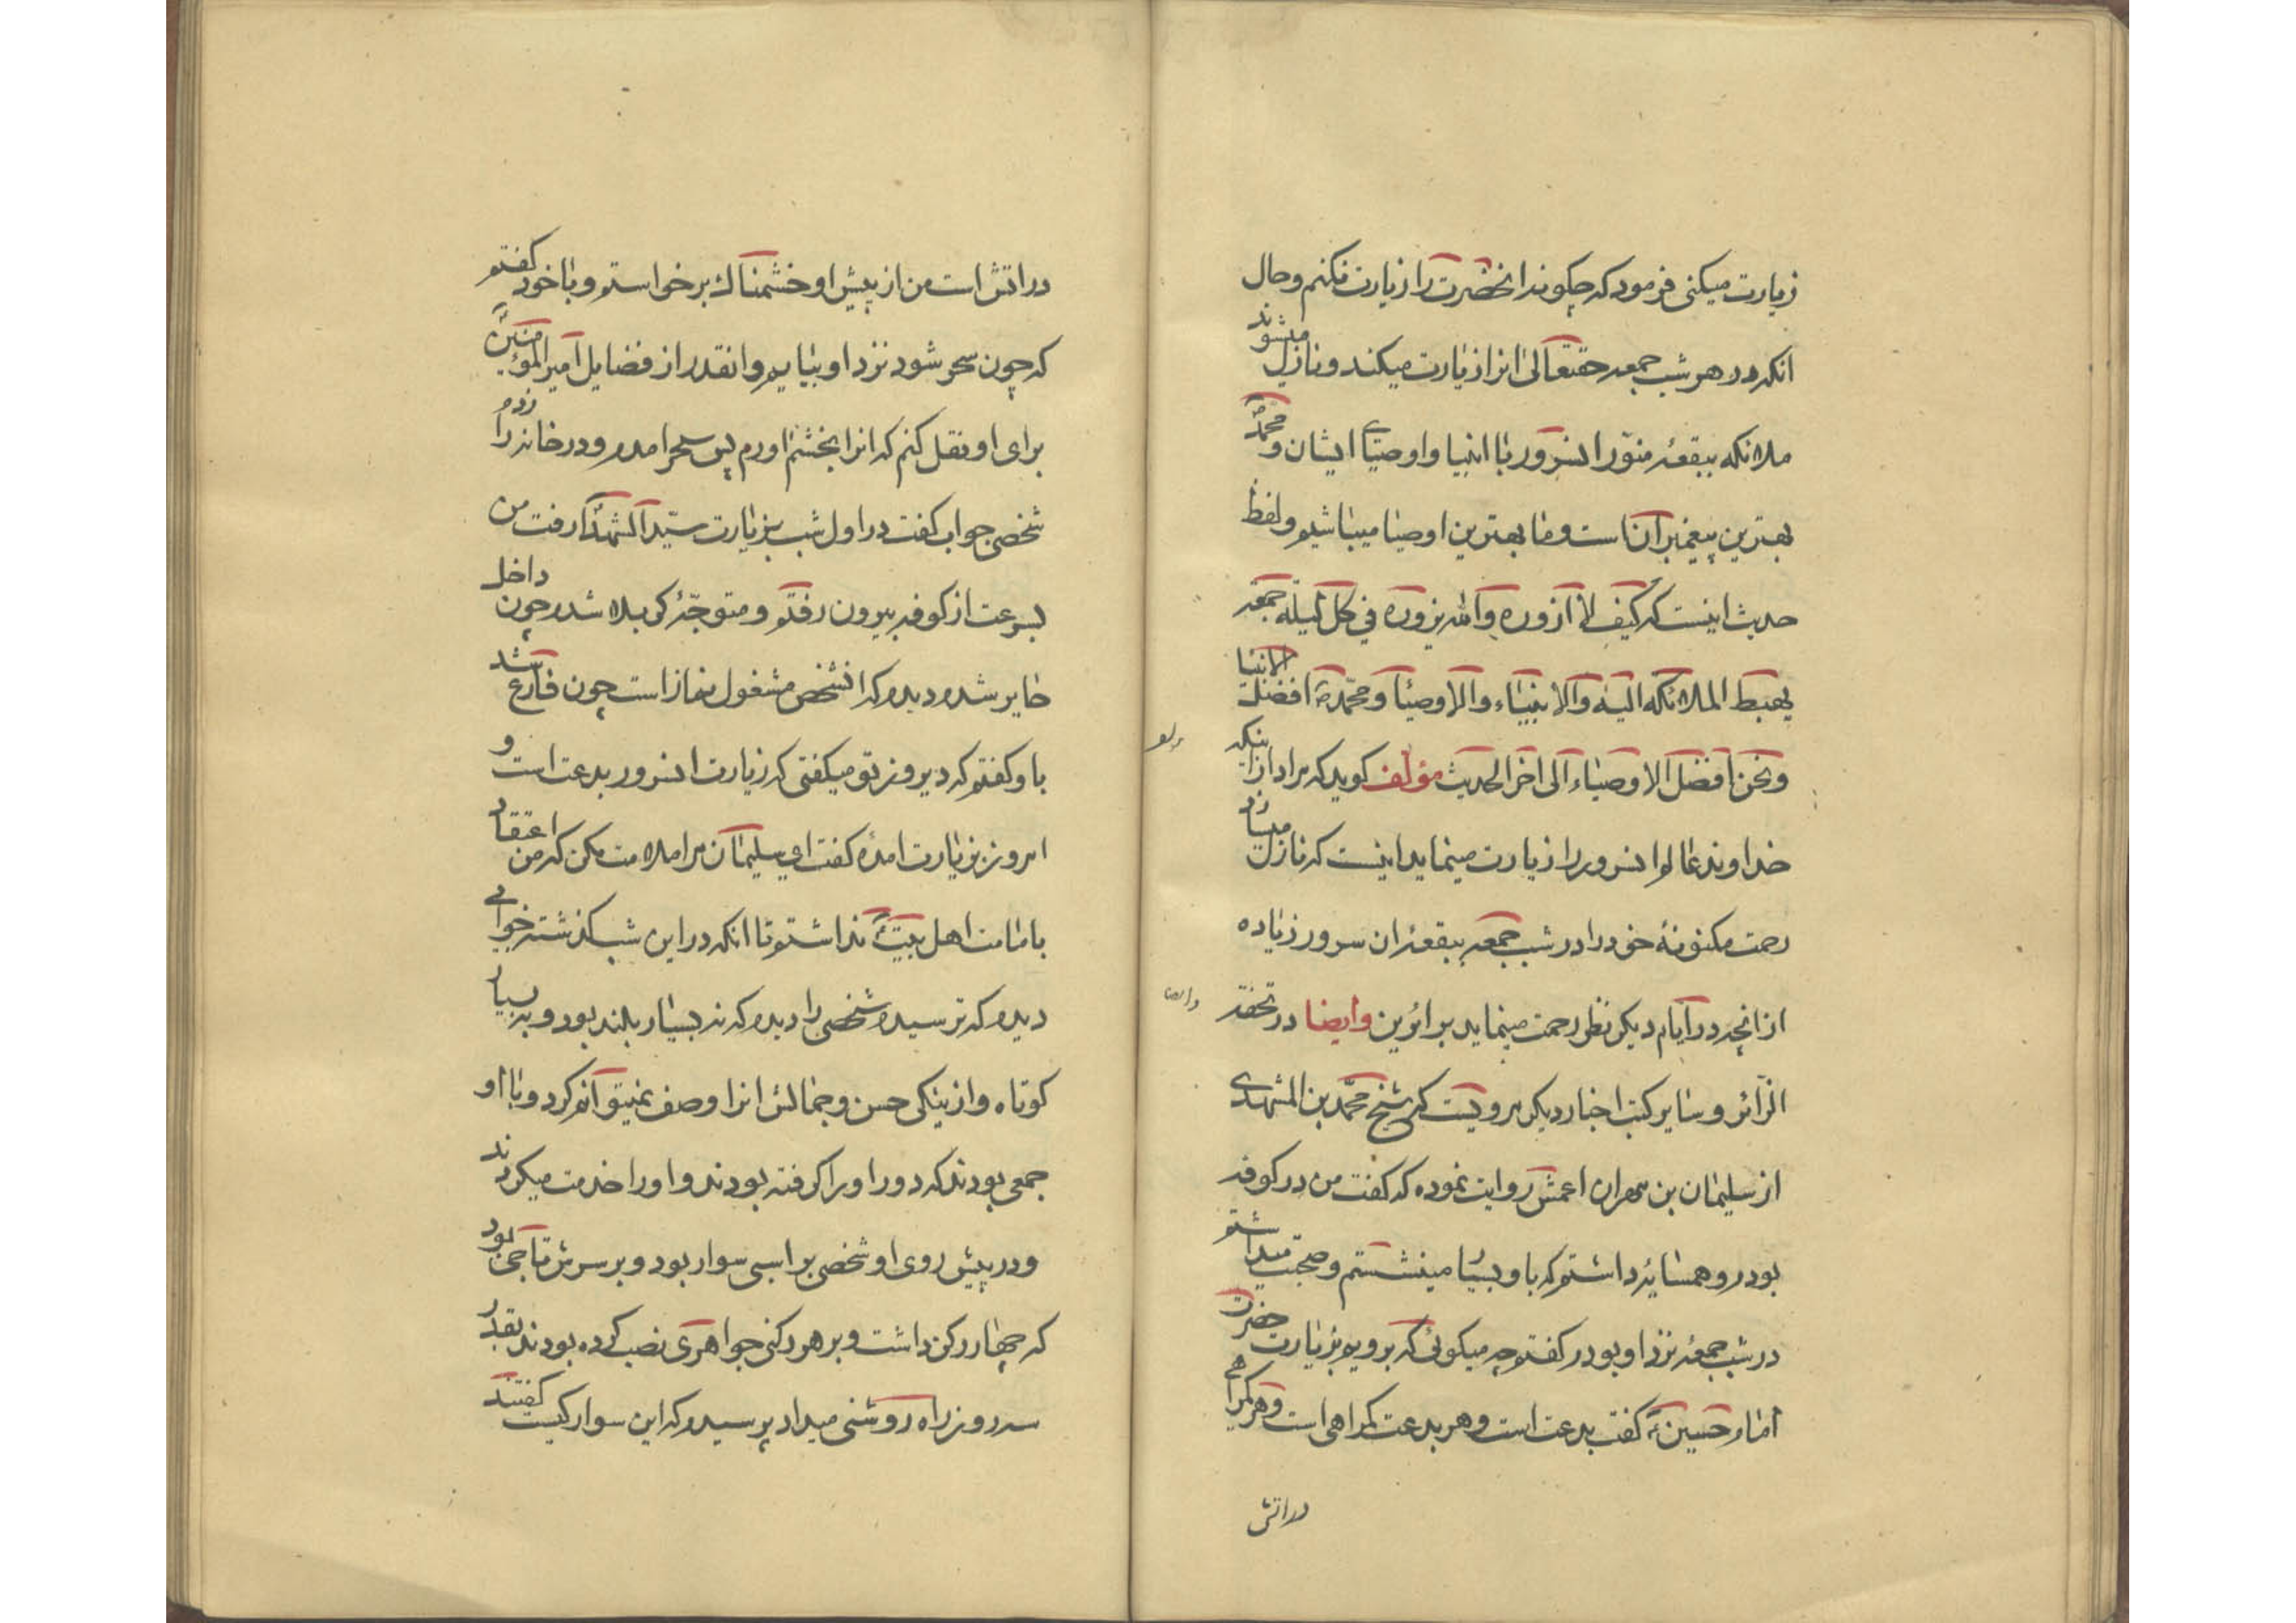 زیارت میکنی فرمود که چکونه انحضرت را زیارت نکنم و حال
انکه در هر شب جمعه حقتعالی انرا زیارت میکند و نازل میشوند
ملائکه ببقعهٔ منوّر انسرور با انبیا و اوصیای ایشان و محمّد
بهترین پیغمبران است و ما بهترین اوصیا میباشیم و لفظ
حدیث اینست که کیف لا ازوره و الله یزوره فی کل لیلة جمعه
یهبط الملائکه الیه و الانبیاء و الاوصیا و محمّد ص افضل الانبیا
و نحن افضل الاوصیاء الی اخر الحدیث مؤلف کوید که مراد از اینکه
خداوند عالم انسرور را زیارت مینماید اینست که نازل میسازد
رحمت مکنونهٔ خود را در شب جمعه ببقعهٔ ان سرور زیاده
از انچه در ایام دیکر نظر رحمت مینماید بزائرین وایضا در تحفة
الزّائر و سایر کتب اخبار دیکر مرویست که شیخ محمّد بن المشهدی
از سلیمان بن مهران اعمش روایت نموده که کفت من در کوفه
بودم و همسایه داشتم که با او بسیا مینشستم و صحبت میداشتم
در شب جمعهٔ نزد او بودم کفتم چه میکوئی که برویم بزیارت حضرت
امام حسین ع کفت بدعت است و هر بدعت کمراهی است و هر کمراهی
در اتش
در اتش است من از پیش او خشمناك برخواستم و با خود کفتم
که چون سحر شود نزد او بیایم و انقدر از فضایل امیر المؤمنین
برای او نقل کنم که انرا بخشم اورم پس سحر امدم و در خانه را زدم
شخصی جواب کفت در اول شب بزیارت سیّد الشهدا رفت من
بسرعت از کوفه بیرون رفتم و متوجّه کربلا شدم چون داخل
حایر شدم دیدم که انشخص مشغول نماز است چون فارغ شد
باو کفتم که دیروز تو میکفتی که زیارت انسرور بدعت است و
امروز بزیارت امدهٔ کفت ای سلیمان مرا ملامت مکن که من اعتقاد
بامامت اهل بیت نداشتم تا انکه در این شب کذشته خوابی
دیدم که ترسیدم شخصی را دیدم که نه بسیار بلند بود و نه بسیار
کوتاه و از نیکی حسن و جمالش انرا وصف نمیتوانم کرد و با او
جمعی بودند که دور او را کرفته بودند و او را خدمت میکردند
و در پیش روی او شخصی بر اسبی سوار بود و بر سرش تاجی بود
که چهار رکن داشت و بر هر رکنی جواهری نصب کرده بودند بقدر
سه روز راه روشنی میداد پرسیدم که این سوار کیست کفتند